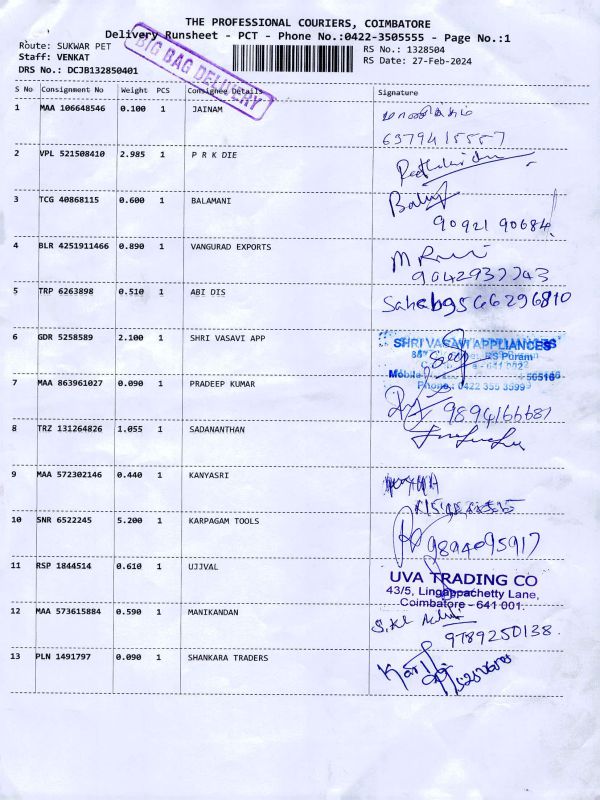 THE PROFESSIONAL COURIERS, COIMBATORE
Delivery Runsheet - PCT - Phone No.:0422-3505555 - Page No.:1
Route: SUKWAR PET
RS No.: 1328504
Staff: VENKAT
RS Date: 27-Feb-2024
DRS No.: DCJB132850401
BIG BAG DELIVERY
S No Consignment No Weight PCS Consignee Details Signature
1 MAA 106648546 0.100 1 JAINAM
2 VPL 521508410 2.985 1 P R K DIE
3 TCG 40868115 0.600 1 BALAMANI
90921 90684
4 BLR 4251911466 0.890 1 VANGURAD EXPORTS
M Ravi
5 TRP 6263898 0.510 1 ABI DIS
Saheb 9566296810
6 GDR 5258589 2.100 1 SHRI VASAVI APP
SHRI VASAVI APPLIANCES
RS Puram
641 002
Mobile
Phone: 0422 355 3599
7 MAA 863961027 0.090 1 PRADEEP KUMAR
8 TRZ 131264826 1.055 1 SADANANTHAN
9 MAA 572302146 0.440 1 KANYASRI
10 SNR 6522245 5.200 1 KARPAGAM TOOLS
9894095917
11 RSP 1844514 0.610 1 UJJVAL
UVA TRADING CO
43/5, Lingappachetty Lane,
Coimbatore - 641 001.
12 MAA 573615884 0.590 1 MANIKANDAN
9789250138
13 PLN 1491797 0.090 1 SHANKARA TRADERS